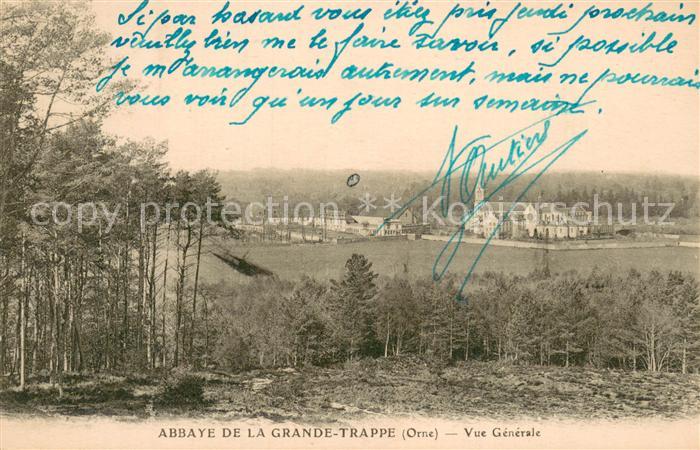 Si par hasard vous étiez pris jeudi prochain
veuillez bien me le faire savoir, si possible
je m'arrangerais autrement, mais ne pourrais
vous voir qu'un jour sur semaine.
copy*right ** Konjerschutz*
ABBAYE DE LA GRANDE-TRAPPE (Orne) — Vue Générale